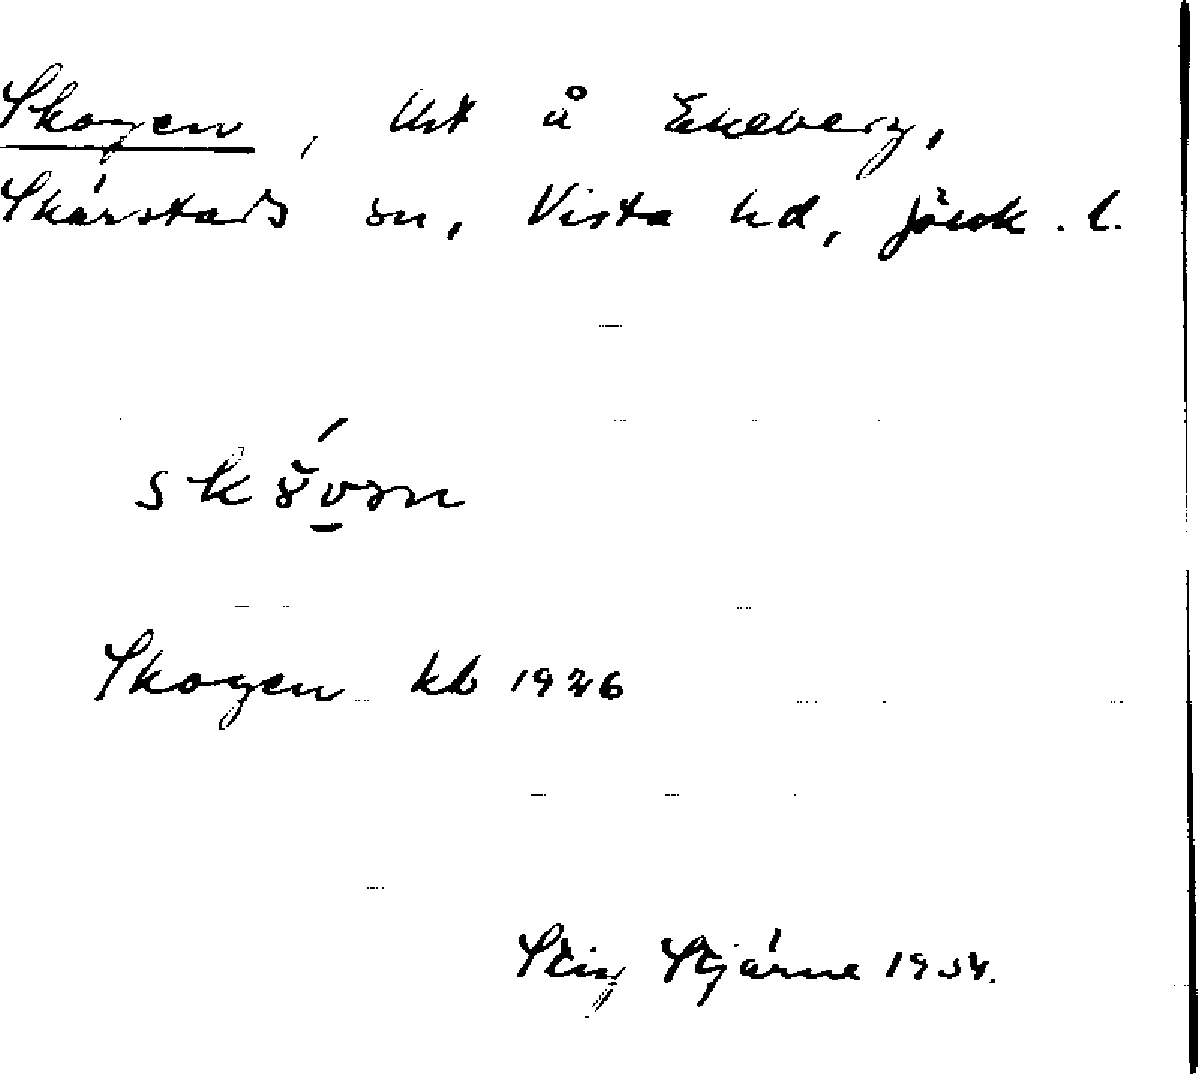 Skogen, lht å Ekeberg,
Skärstads sn, Vista hd, Jönk. l.
Skogen kb 1926
Stig Stjärne 1934.